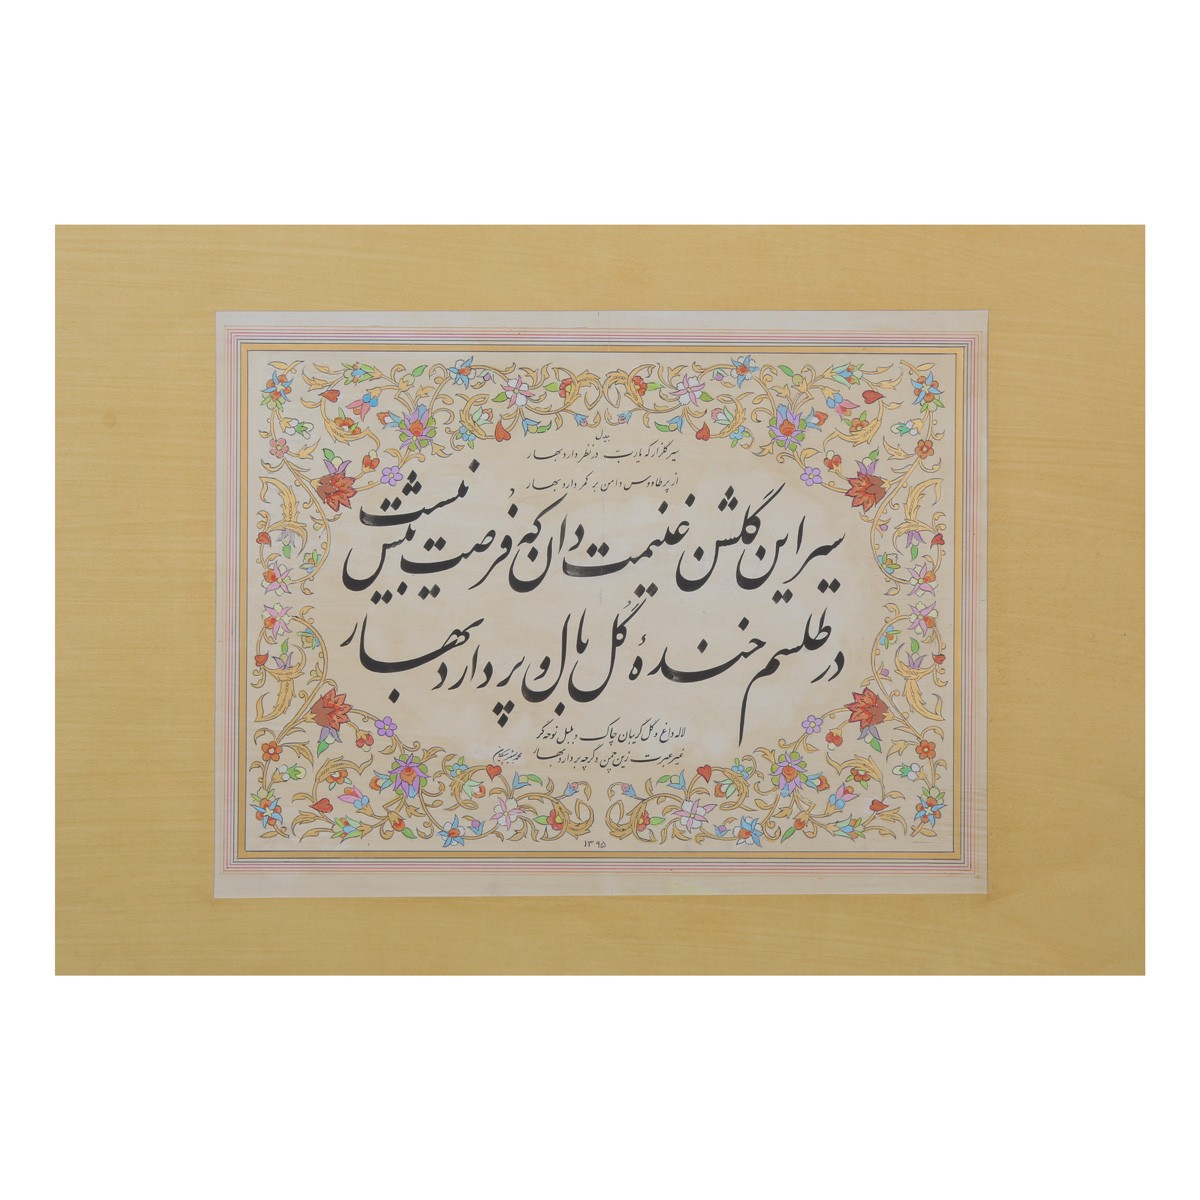 بیدل
سیر گلزار که یارب در نظر دارد بهار
از پر طاووس دامن بر کمر دارد بهار
سیر این گلشن غنیمت دان که فرصت بیش نیست
در طلسم خندهٔ گل بال و پر دارد بهار
لاله داغ و گل گریبان چاک و بلبل نوحه گر
غیر عبرت زین چمن دیگر چه بردارد بهار
۱۳۹۵